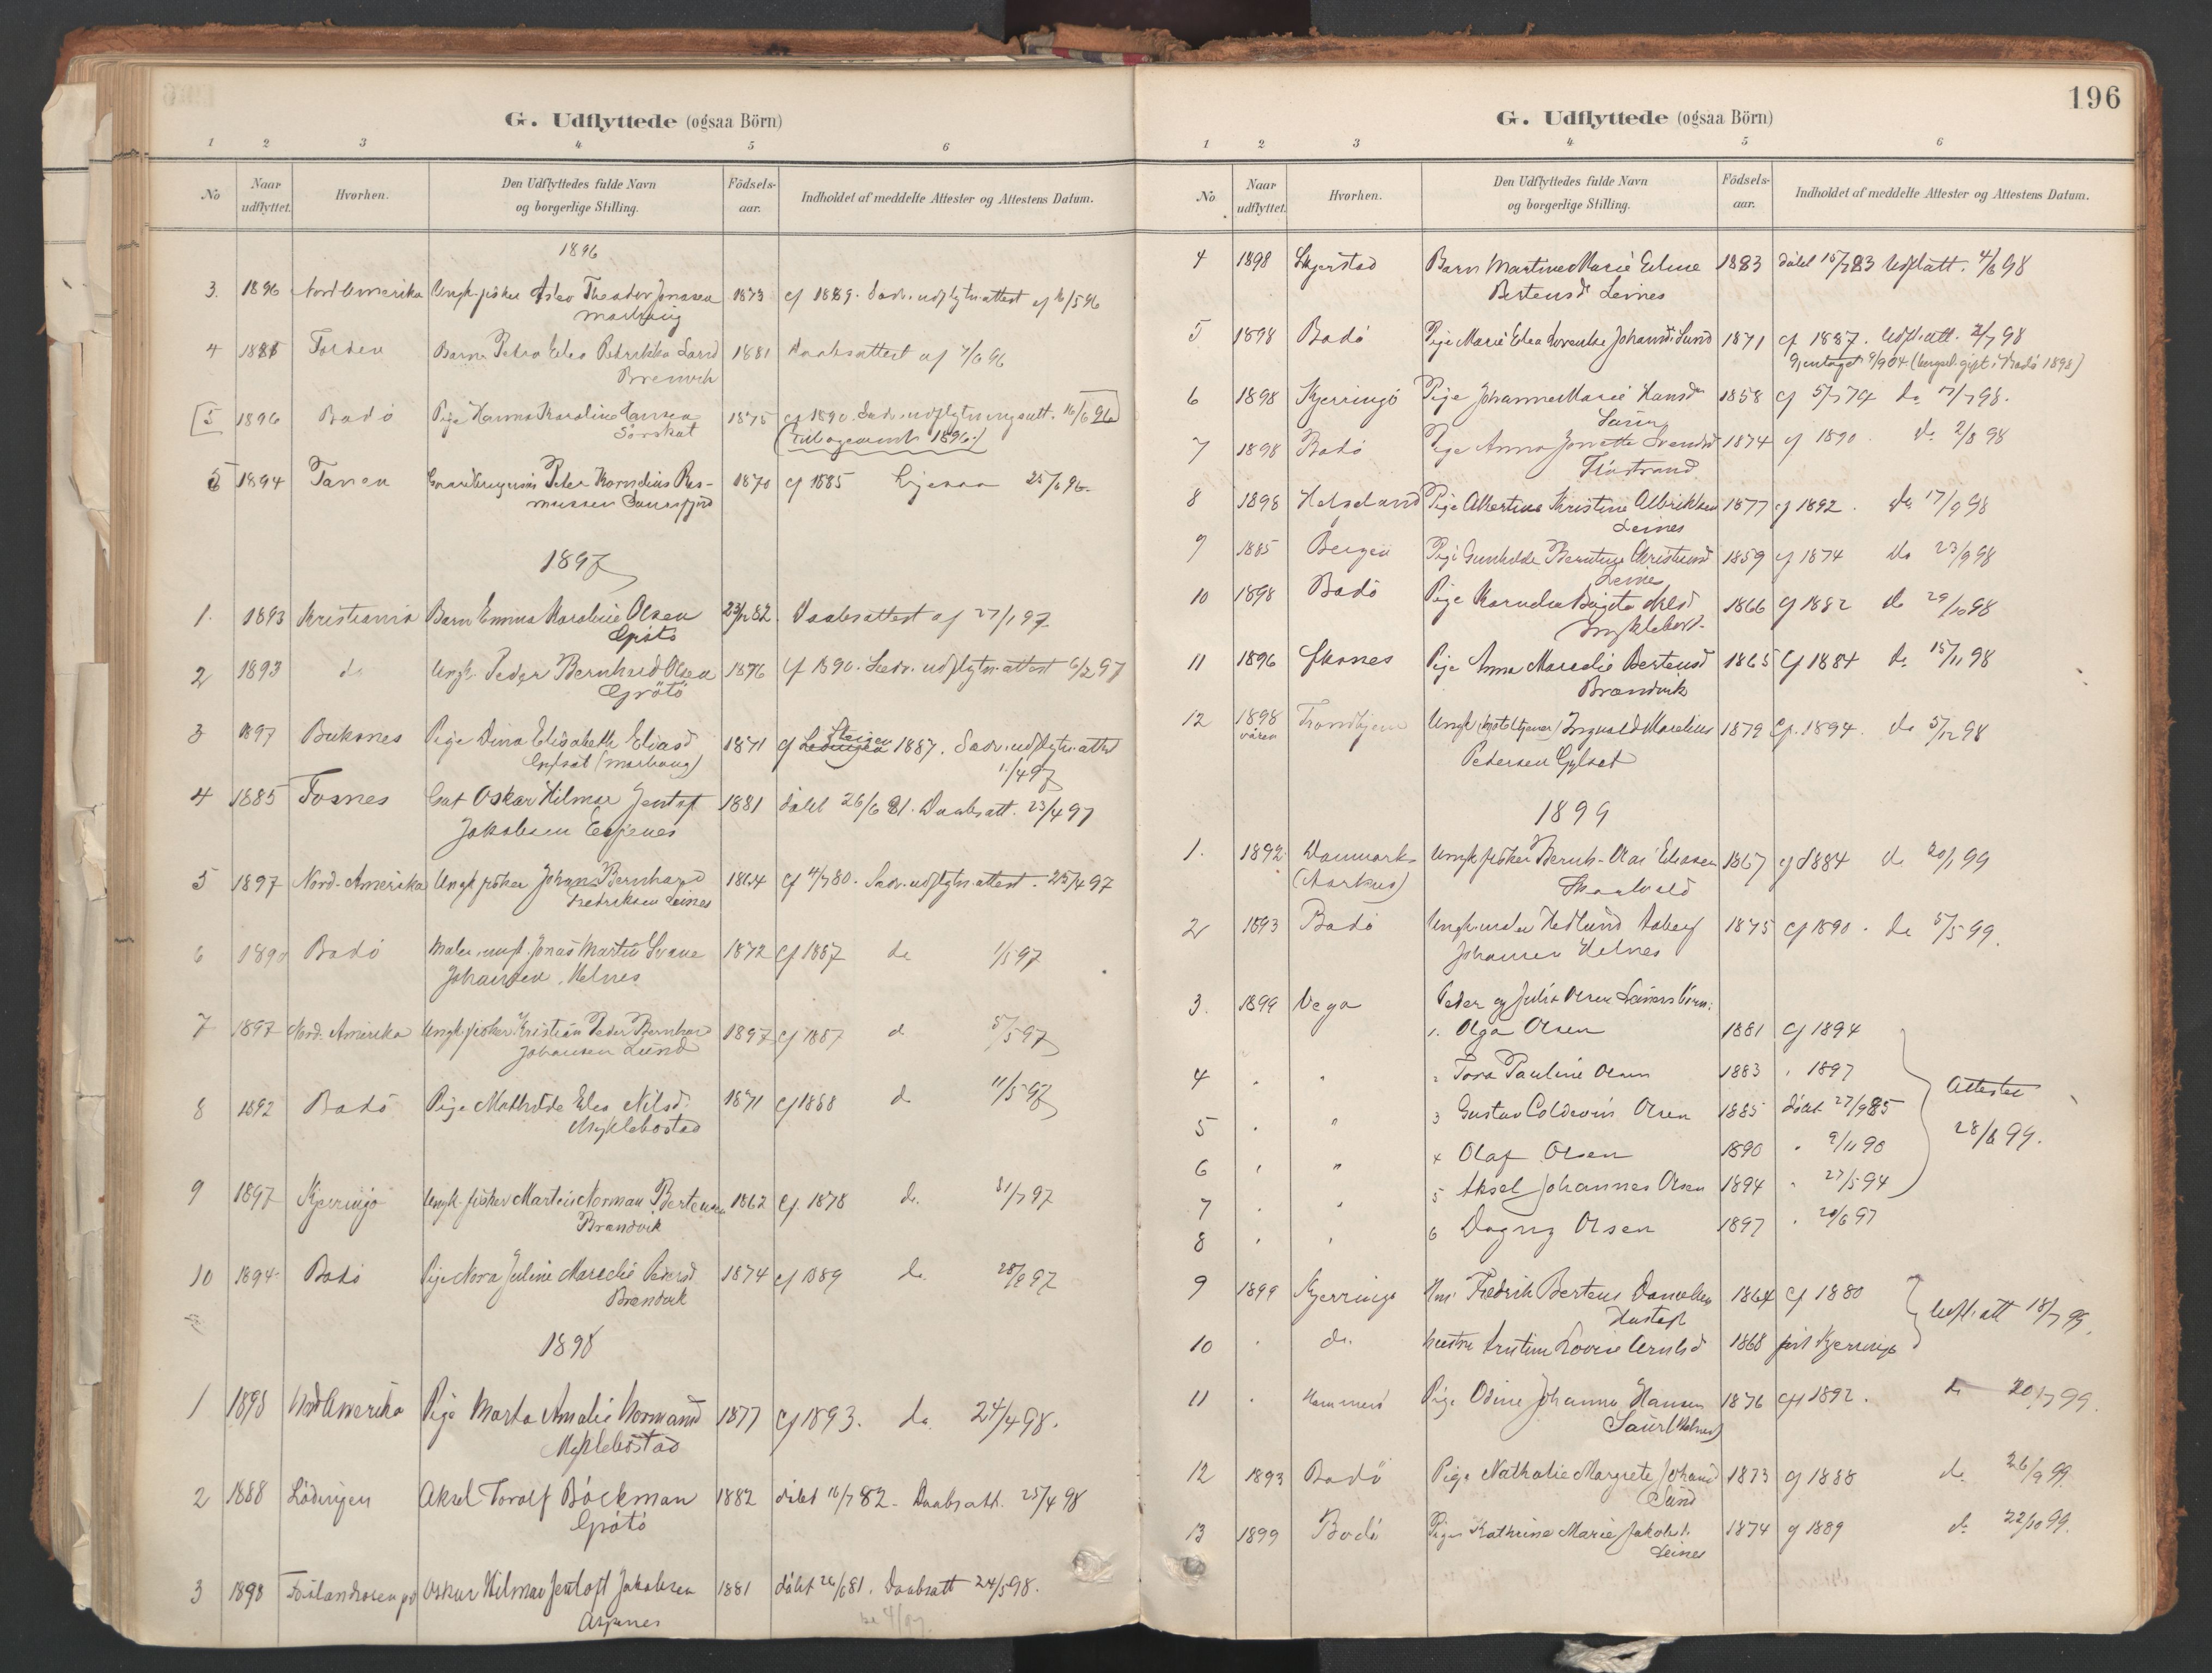 G. Udflyttede (ogsaa Börn)
1 2 3 4 5 6
No Naar udflyttet. Hvorhen. Den Udflyttedes fulde Navn og borgerlige Stilling. Födsels-aar. Indholdet af meddelte Attester og Attestens Datum.
1896
3. 1896 Nord Amerika Ungk. fisker Theodor Jonasen 1873 cf 1889. Sedv. udflytn. attest af 16/5 96
4 Barn Petra 1881 Daabsattest af 7/6 96
5 1896 Bodö Pige Hanna Karoline Hansen 1875 cf 1890. Sedv. udflytningsatt. 16/6 96
Sörskot (Tilbagesendt 1896.)
5 1894 Tanen Peter Kornelius Ras- 1870 cf 1885 25/6 96.
mussen
1897
1. 1893 Kristiania Barn Emma Karoline Olsen 23/12 82. Daabsattest af 27/1 97.
Grötö
2 1893 do Ungk. Peder Bernhard Olsen 1876 cf 1890. Sedv. udflytn. attest 6/2 97
Grötö
3 1897 Buksnes Pige Dina Elisabeth Eliasd 1871 cf Steigen 1887. Sedv. udflytn. attest
(Marhaug) 1/4 97
4 1885 Fosnes Gut Oskar Hilmar Jentoft 1881 döbt 26/6 81. Daabsatt. 23/4 97
Jakobsen
5 1897 Nord-Amerika Ungk fisker Johan Bernhard 1864 cf 4/7 80. Sedv. udflytn. attest. 25/4 97
Fredriksen Leines
6 1890 Bodö Maler, ungk. Jonas Martin Svane 1872 cf 1887 do 1/5 97
Johansen, Helnes
7 1897 Nord-Amerika Ungk fisker Kristian Peder Bernhar 1897 cf 1887 do 5/5 97
Johansen Lund
8 1892 Bodö Pige Mathilde Elea Nilsd. 1871 cf 1888 do 11/5 97
Myklebostad
9 1897 Kjerringö Ungk fisker Martin Norman Bertensen 1862 cf. 1878 do. 31/7 97
Brandvik
10 1894 Bodö Pige Nora Juline Marselie Pedersd. 1874 cf 1889 do. 28/8 97
Brandvik
1898
1 1898 Nord Amerika Pige Marta Amalie Normand 1877 cf 1893. do. 24/4 98.
Myklebostad
2 1888 Lödingen Aksel Torolf Böckman 1882 döbt 16/7 82. Daabsatt. 25/4 98
Grötö
3 1898 Oskar Hilmar Jentoft Jakobsen 1881 döbt 26/6 81. Daabsatt 24/5 98.
Aspenes se 4/97.
196
G. Udflyttede (ogsaa Börn)
1 2 3 4 5 6
No Naar udflyttet. Hvorhen. Den Udflyttedes fulde Navn og borgerlige Stilling. Födsels-aar. Indholdet af meddelte Attester og Attestens Datum.
4 1898 Skjerstad Barn Martine Marie Eline 1883 döbt 15/7 83 Udflatt. 4/6 98
Bertensd Leines
5 1898 Bodö Pige Marie Elea Johansd. Lund 1871 cf 1887. Udfl. att. 2/7 98
Gjentaget 9/9 04 (bergsel. gift i Bodö 1898)
6 1898 Kjerringö Pige Johanne Marie Hansd 1858 cf 5/7 74 do 7/7 98.
7 1898 Bodö Pige Anna Jonette Svendsd 1874 cf 1890. do 2/8 98
8 1898 Helgeland Pige Albertine Kristine Albriktsen 1877 cf 1892. do 17/9 98
Leines
9 1885 Bergen Pige Gunhilde Berntine Christiansd 1859 cf 1874 do 23/9 98
Leines
10 1898 Bodö Pige Kornelia Birgitta Nilsd 1866 cf 1882 do 29/10 98
Myklebost.
11 1896 Skaanes Pige Anna Marselie Bertensd 1865 cf 1884 do 15/11 98
Brandvik
12 1898 våren Trondhjem Ungk (hoteltjener) Ingvald Marelius 1879 cf. 1894. do 5/12 98
Pedersen Gylset
1899
1. 1892 Danmark Ungk fisker Bernh. Olai Eliasen 1867 cf 1884 do 20/1 99
(Aarhus)
2 1893 Bodö Ungk. maler Hedlund 1875 cf 1890. do 5/5 99.
Johansen Helnes
3. 1899 Vega Peder og Julia Olsen Leines börn:
1. Olga Olsen 1881 cf 1894
4 " " 2 Tora Pauline Olsen 1883 " 1897
Attester
5 " " 3 Gustav Coldevin Olsen 1885 döbt 27/9 85
28/6 99.
6 " " 4 Olaf Olsen 1890 " 9/11 90
7 " " 5 Aksel Johannes Olsen 1894 " 27/5 94
8 " " 6 Dagny Olsen 1897 " 20/6 97
9 1899 Kjerringö Fredrik Berteus Danielsen 1864 cf 1880
Udfl. att 18/7 99.
10 " do. hustru Lovise 1868 Kjerringö
11 " Hammerö Pige Odine Johanna Hansen 1876 cf 1892. do 20/7 99.
(Helnes)
12 1893 Bodö Pige Nathalie Margrete Johansd 1873 cf 1888 do 26/9 99.
Lund
13 1899 Bodö Pige Kathrine Marie Jakobsd. 1874 cf 1889 do 22/10 99.
Leines